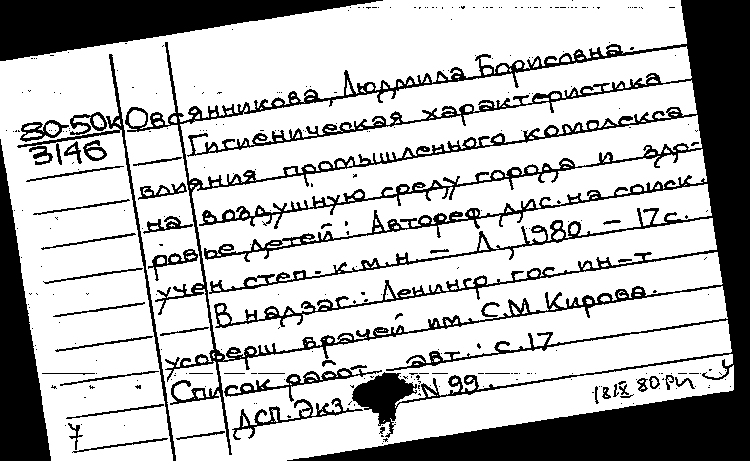 80-50к Овсянникова, Людмила Борисовна.
3146 Гигиеническая характеристика
влияния промышленного комплекса
на воздушную среду города и здо-
ровье детей: Автореф. дис. на соиск.
учен. степ. к.м.н. – Л., 1980. – 17 с.
В надзаг.: Ленингр. гос. ин-т
усоверш врачей им. С.М. Кирова.
Список работ авт.: с. 17.
ДСП. Экз. N 99.
7